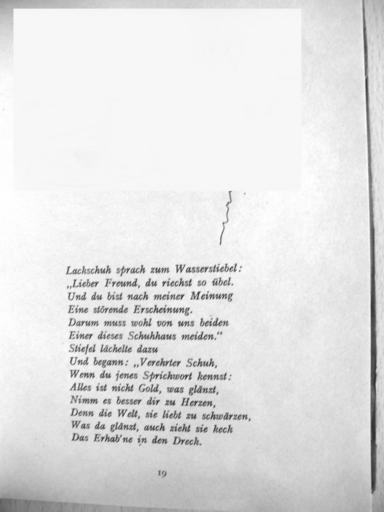 Lachschuh sprach zum Wasserstiebel:
„Lieber Freund, du riechst so übel.
Und du bist nach meiner Meinung
Eine störende Erscheinung.
Darum muss wohl von uns beiden
Einer dieses Schuhhaus meiden.“
Stiefel lächelte dazu
Und begann: „Verehrter Schuh,
Wenn du jenes Sprichwort kennst:
Alles ist nicht Gold, was glänzt,
Nimm es besser dir zu Herzen,
Denn die Welt, sie liebt zu schwärzen,
Was da glänzt, auch zieht sie keck
Das Erhab'ne in den Dreck.
19